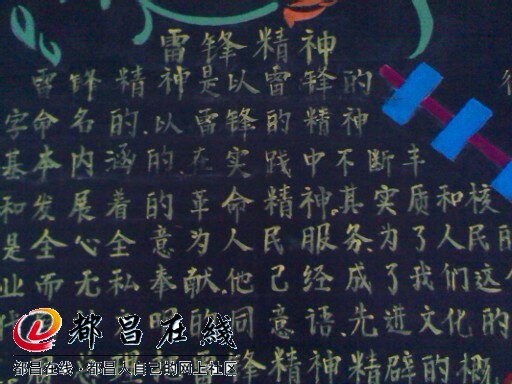 雷锋精神
雷锋精神是以雷锋的
字命名的、以雷锋的精神
基本内涵的、在实践中不断丰
和发展着的革命精神。其实质和核
是全心全意为人民服务、为了人民的
业而无私奉献.他已经成了我们这
的同意语.先进文化的
锋精神精辟的概
都昌在线
都昌在线·都昌人自己的网上社区